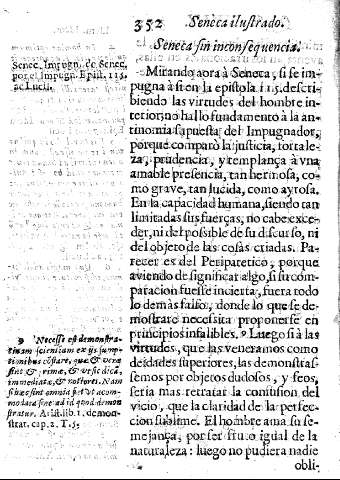 352 Seneca ilustrado.
Seneca sin inconsequencia.
Senec. Impugn. de Senec.
por el impugn. Epist. 115.
ac Lucil.
Mirando aora à Seneca, si se im-
pugna à si en la epistola 115. descri-
biendo las virtudes del hombre in-
terior; no hallo fundamento à la an-
tinomia supuesta del Impugnador,
porque comparò la justicia, fortale-
za, prudencia, y templança à vna
amable presencia, tan hermosa, co-
mo grave, tan lucida, como ayrosa.
En la capacidad humana, siendo tan
limitadas sus fuerças, no cabe exce-
der, ni del possible de su discurso, ni
del objeto de las cosas criadas. Pa-
recer es del Peripatetico, porque
aviendo de significar algo, si su com-
paracion fuesse incierta, fuera todo
lo demàs falso, donde lo que se de-
mostrare necessita proponerse en
principios infalibles. 9 Luego si à las
virtudes, que las veneramos como
deidades superiores, las demostras-
semos por objetos dudosos, y feos,
seria mas retratar la confusion del
vicio, que la claridad de la perfec-
cion sublime. El hombre ama su se-
mejança, por ser fruto igual de la
naturaleza: luego no pudiera nadie
obli-
9 Necesse est demonstra-
tivam scientiam ex ijs sump-
tionibus cõstare, quæ & veræ
sint & primæ, & vt sic dicã,
immediatæ, & notiores. Nam
si hæc sint omnia fiet vt acom-
modata sint ad id quod demon-
stratur. Arist. lib. 1. demo-
strat. cap. 2. T. 5.